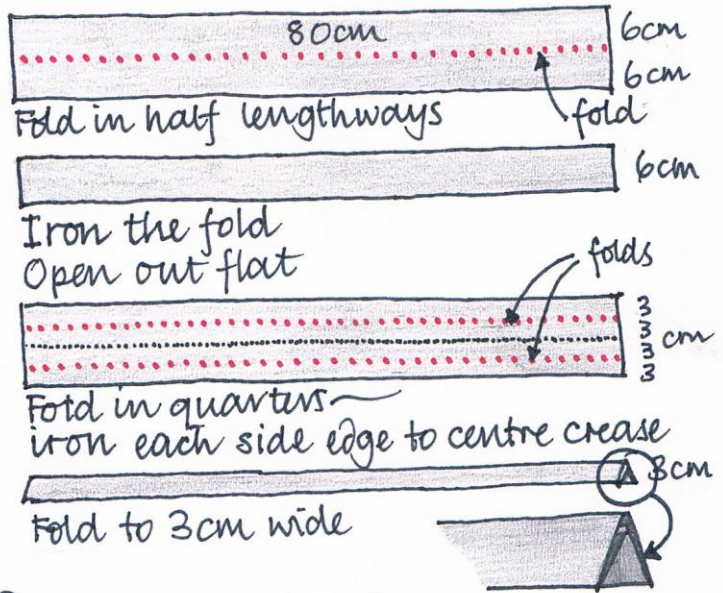 80cm
6cm
6cm
Fold in half lengthways
fold
6cm
Iron the fold
Open out flat
folds
3
3
3
3
cm
Fold in quarters —
iron each side edge to centre crease
3cm
Fold to 3cm wide